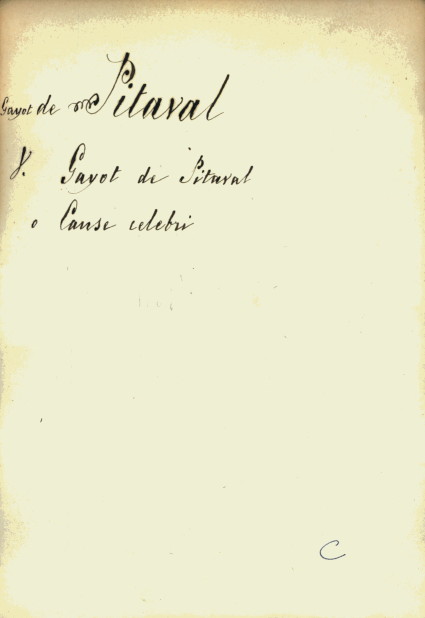 Gayot de Pitaval
V. Gayot de Pitaval
o Cause celebri
C